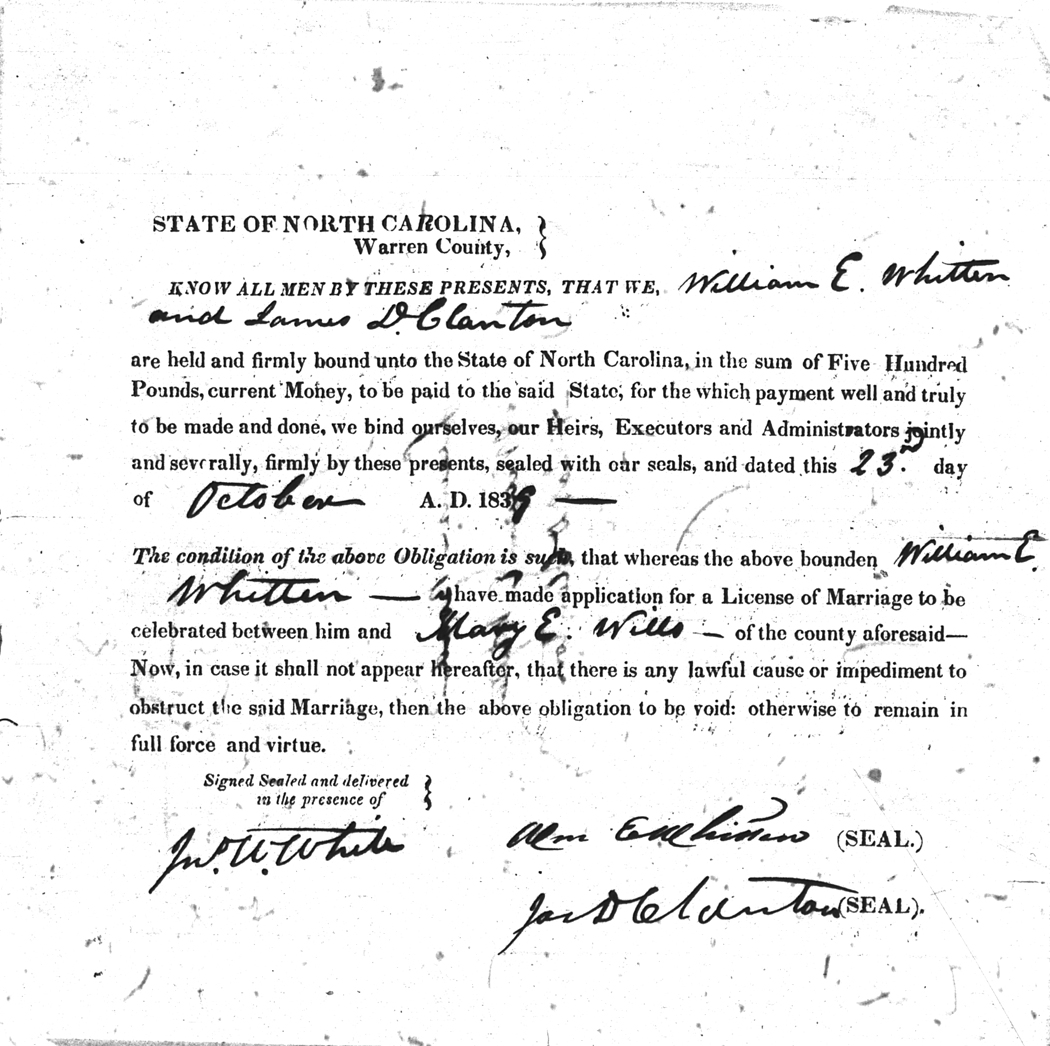 STATE OF NORTH CAROLINA,
Warren County,
KNOW ALL MEN BY THESE PRESENTS, THAT WE, William E. Whitten
and James D. Clanton
are held and firmly bound unto the State of North Carolina, in the sum of Five Hundred
Pounds, current Money, to be paid to the said State, for the which payment well and truly
to be made and done, we bind ourselves, our Heirs, Executors and Administrators jointly
and severally, firmly by these presents, sealed with our seals, and dated this 23rd day
of October A. D. 1839 —
The condition of the above Obligation is such, that whereas the above bounden William E.
Whitten — have made application for a License of Marriage to be
celebrated between him and Mary E. Wills — of the county aforesaid—
Now, in case it shall not appear hereafter, that there is any lawful cause or impediment to
obstruct the said Marriage, then the above obligation to be void: otherwise to remain in
full force and virtue.
Signed Sealed and delivered
in the presence of
Wm E Whitten (SEAL.)
Jno. W. White
Jas D Clanton (SEAL).